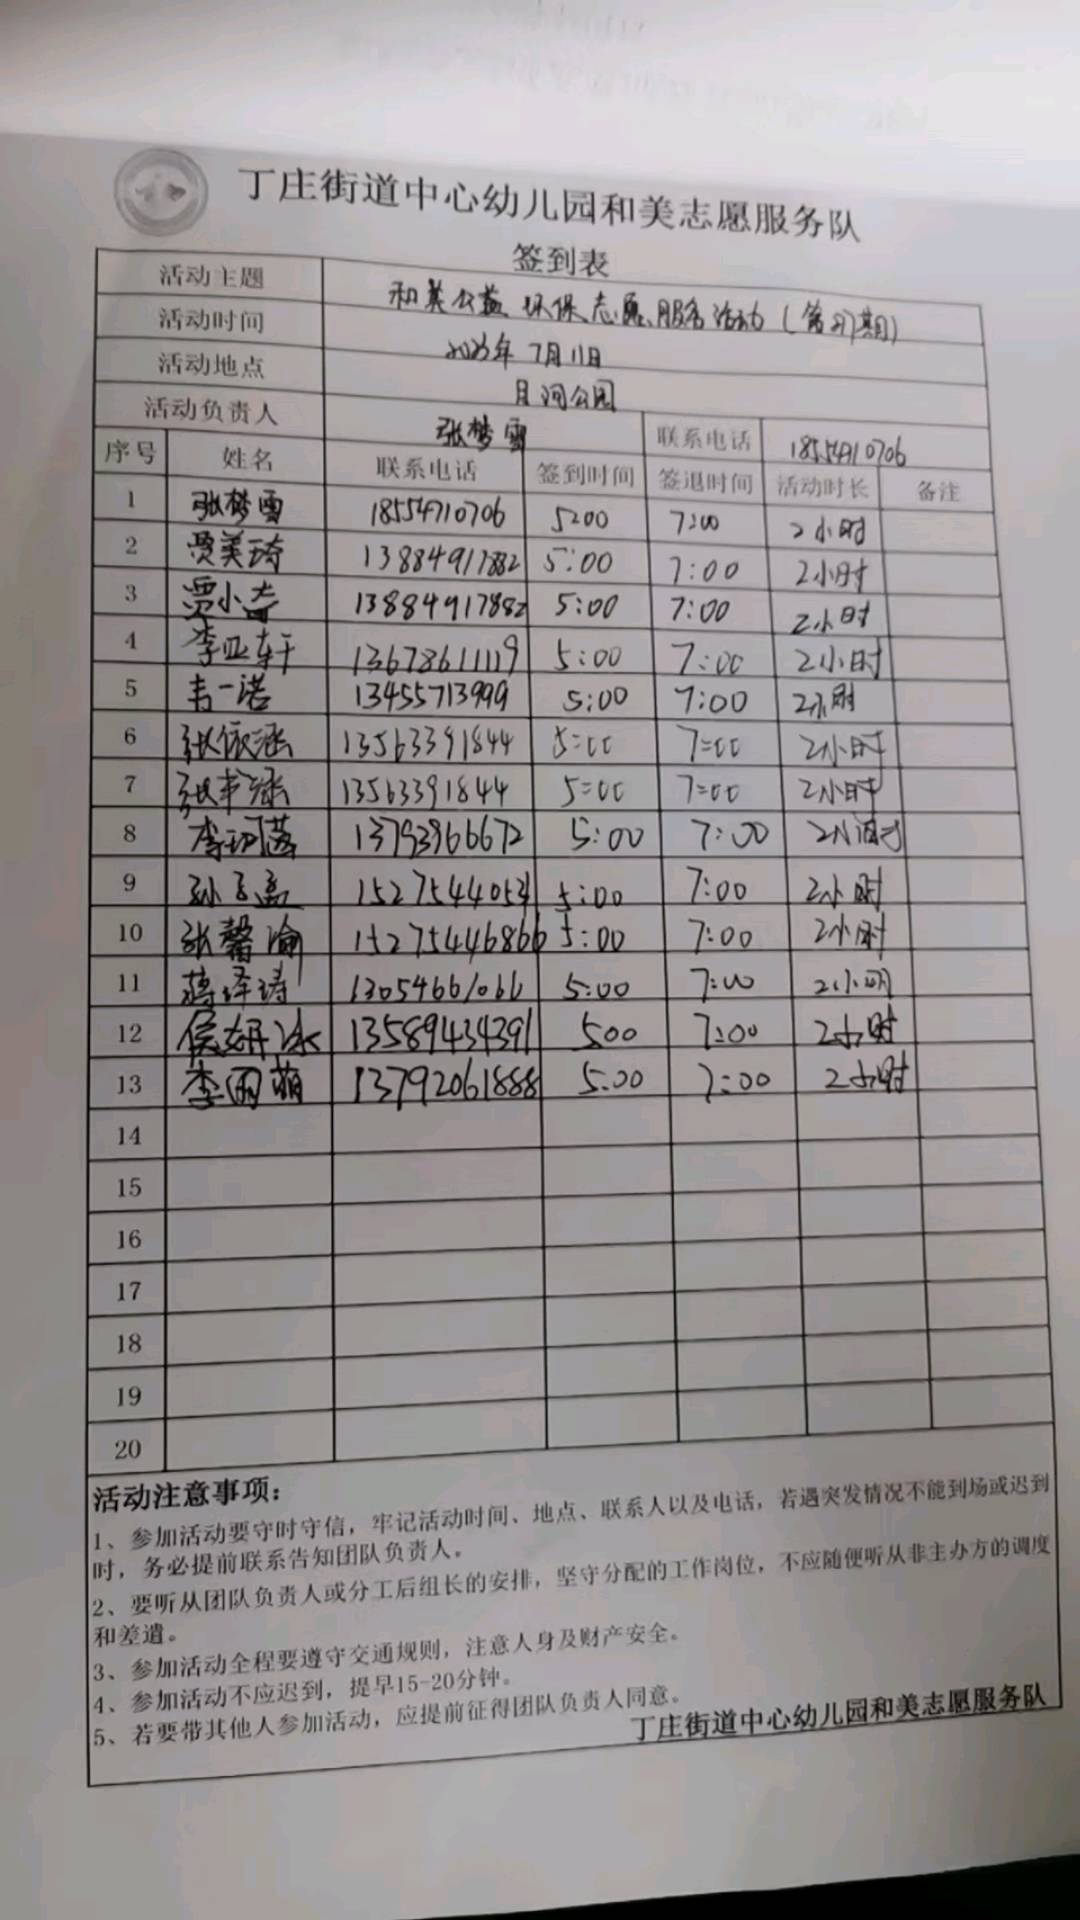 丁庄街道中心幼儿园和美志愿服务队
签到表
活动主题 和美公益环保志愿服务活动(第27期)
活动时间 2023年7月11日
活动地点 月河公园
活动负责人 张梦雪 联系电话 18554710706
序号 姓名 联系电话 签到时间 签退时间 活动时长 备注
1 张梦雪 18554710706 5:00 7:00 2小时
2 贾美琦 13884917882 5:00 7:00 2小时
3 贾小奇 13884917882 5:00 7:00 2小时
4 李亚轩 13678611119 5:00 7:00 2小时
5 韦一诺 13455713999 5:00 7:00 2小时
6 张依涵 13563391844 5:00 7:00 2小时
7 张书涵 13563391844 5:00 7:00 2小时
8 李珂菡 13793966672 5:00 7:00 2小时
9 孙 5:00 7:00 2小时
10 张馨瀹 15275446866 5:00 7:00 2小时
11 蒋泽涛 13054661066 5:00 7:00 2小时
12 侯妍冰 13589434391 5:00 7:00 2小时
13 李雨萌 13792061888 5:00 7:00 2小时
14
15
16
17
18
19
20
活动注意事项:
1、参加活动要守时守信,牢记活动时间、地点、联系人以及电话,若遇突发情况不能到场或迟到
时,务必提前联系告知团队负责人。
2、要听从团队负责人或分工后组长的安排,坚守分配的工作岗位,不应随便听从非主办方的调度
和差遣。
3、参加活动全程要遵守交通规则,注意人身及财产安全。
4、参加活动不应迟到,提早15-20分钟。
5、若要带其他人参加活动,应提前征得团队负责人同意。
丁庄街道中心幼儿园和美志愿服务队